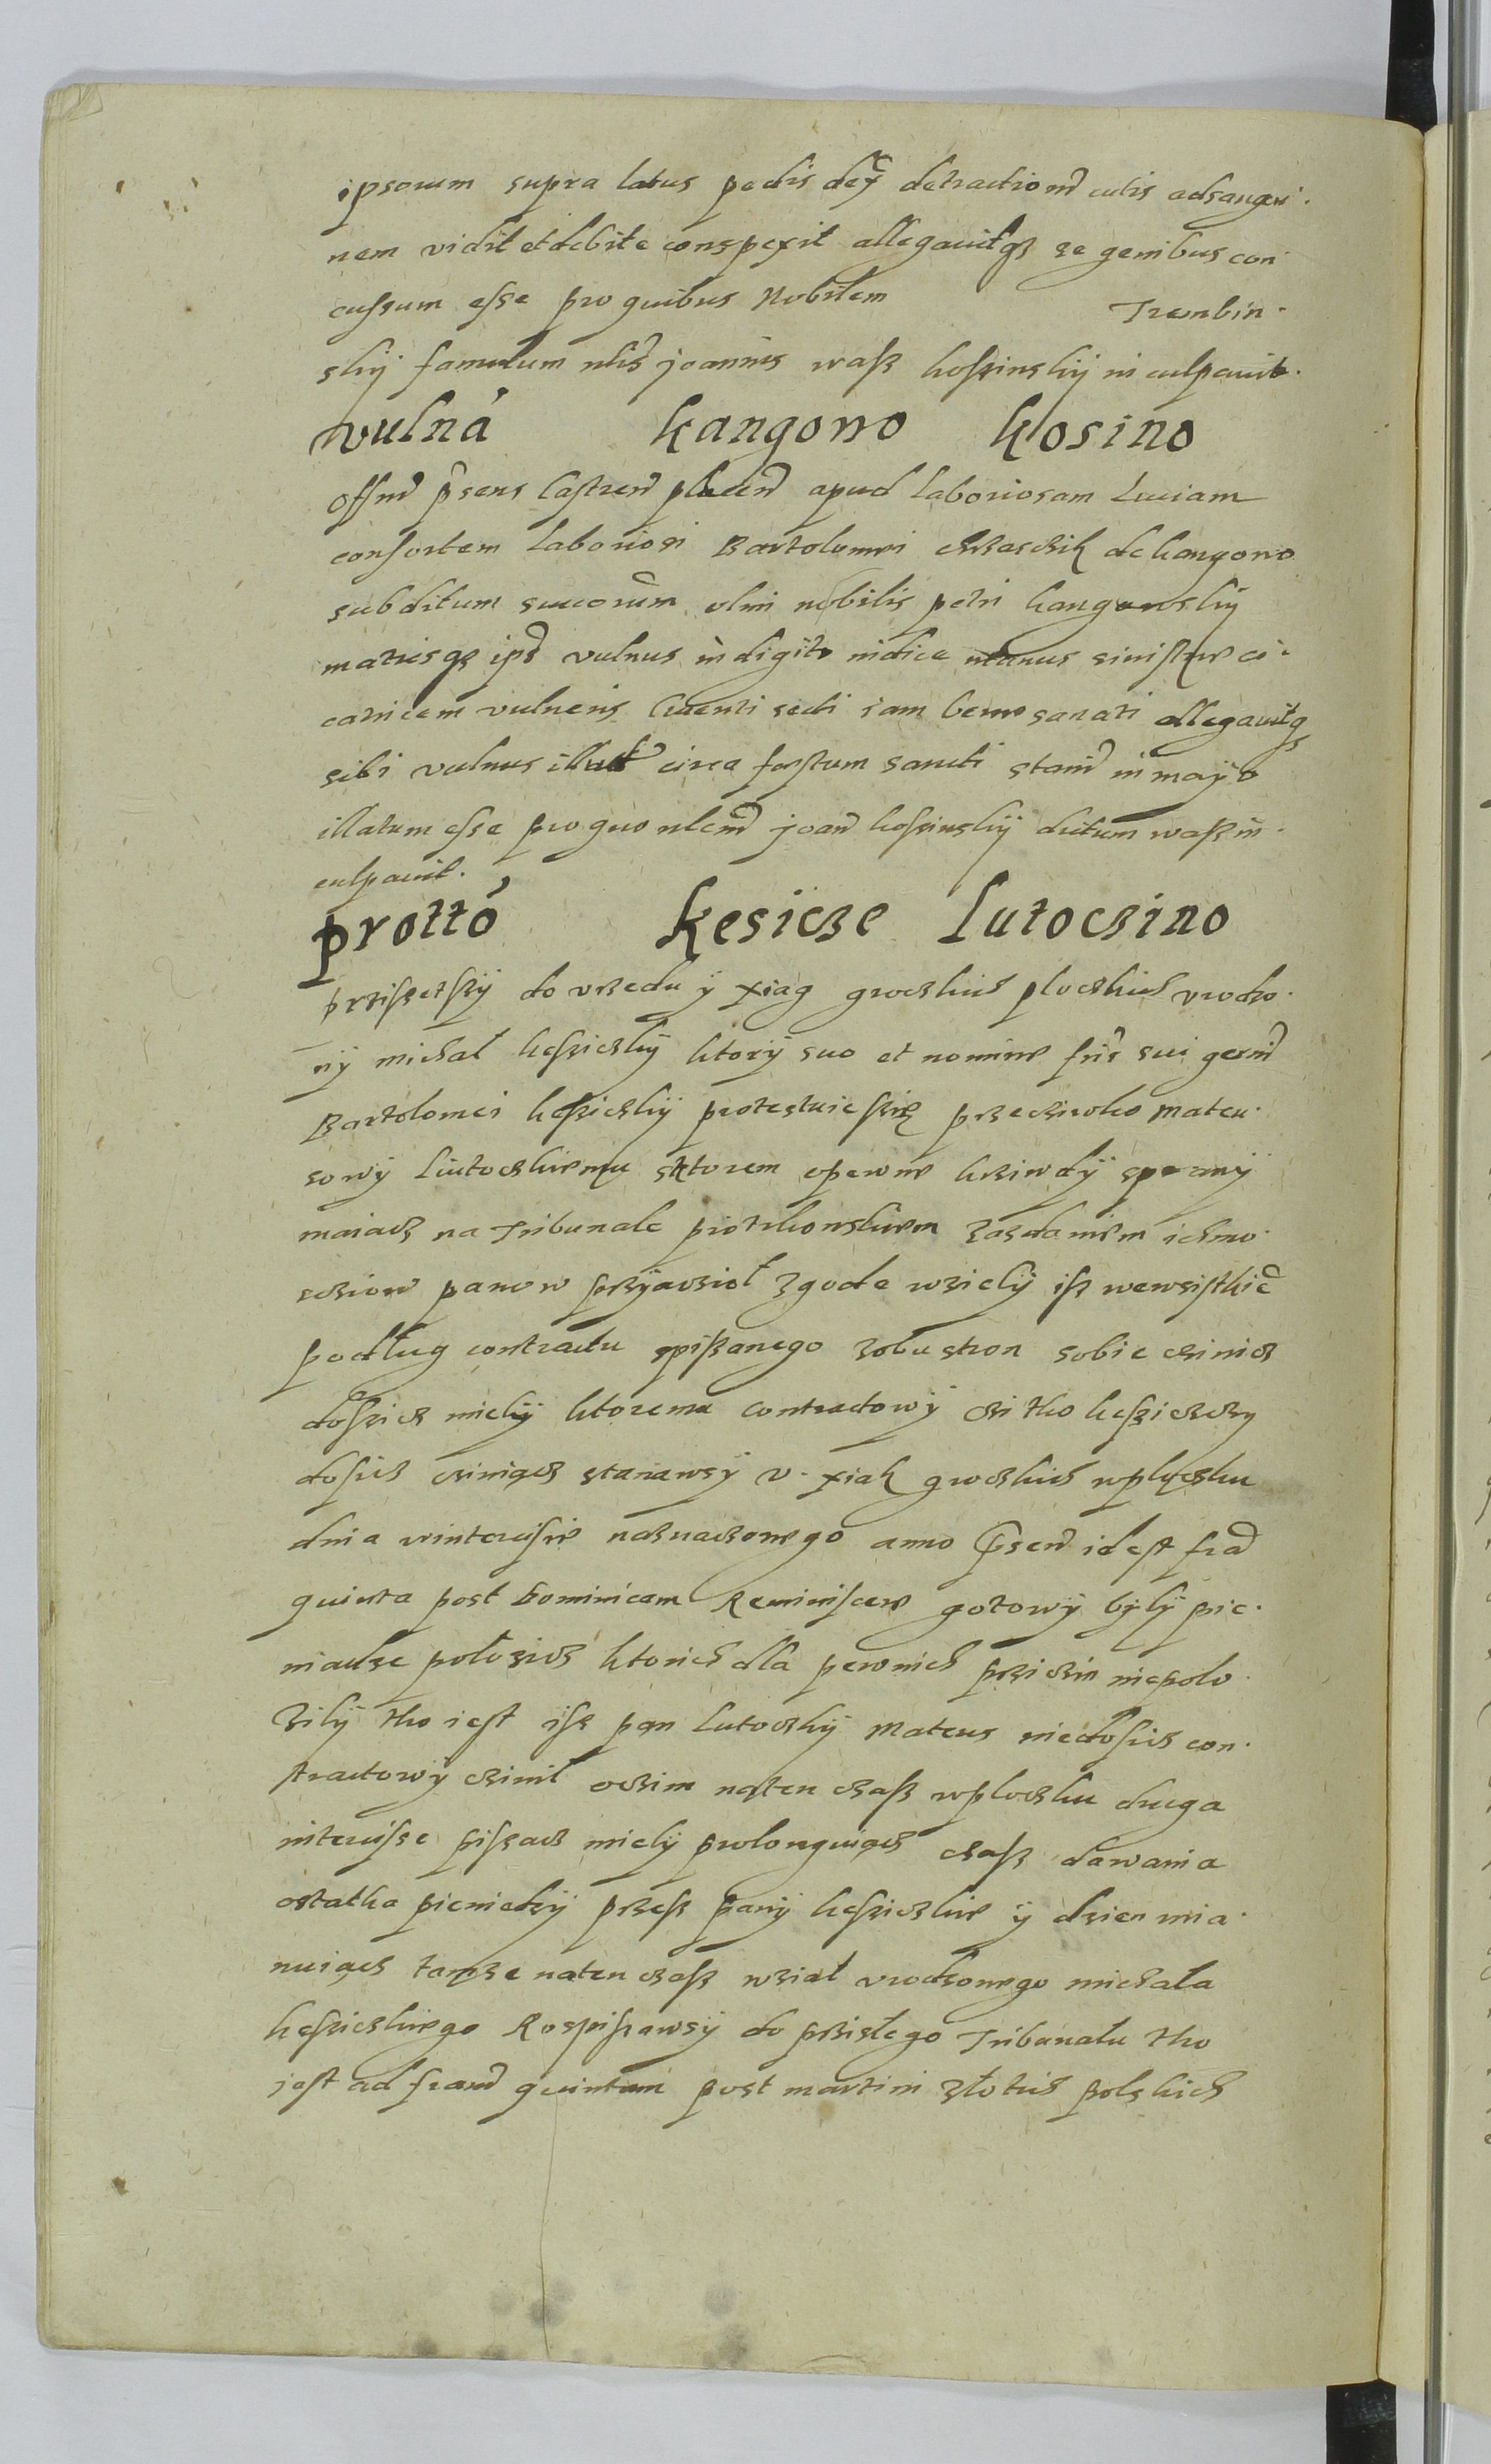 ipsorum supra latus pedis dex detractionem cutis adsangui.
nem vidit et debite conspexit allegauitqз se genibus con.
cussum esse pro quibus Nobilem Trembin.
skÿ famulum nlis joannis waß koßinskÿ in culpauit.
vulna kangowo kosino
Offm psens Castren placen apud laboriosam Luciam
consortem laboriosi Bartolomei de kangowo
subditum suuorum olim nobilis petri kangowskÿ
matrisqз ips vulnus in digito indice manus sinistre ci.
catricem vulneris Cruenti secti iam bene sanati allegauitqз
sibi vulnus illud circa festum sancti stani in maÿo
illatum esse pro quo nlem joan koßinskÿ dictum waß in.
culpauit.
prottó kesicze lutoczino
prziszetszÿ do vrzedu ÿ xiag groczkich ploczkich vrodzo.
nÿ michał keßiczkÿ ktorÿ suo et nomine fris sui germ
Bartolomei keßiczkÿ protestuie szię przecziwko mateu.
sowÿ Liutoczkiemu sktorem opewne krziwdÿ sprawÿ
maiacz na Tribunale piotrkowskiem zasdaniem ichmo.
scziow panow przÿaczioł zgode wzielÿ isz wewsistkie
podług contractu spißanego zobu stron sobie czinicz
doßicz mielÿ ktoremu contractowÿ czi tho keßiczczy
dosicz cziniącz stanawsÿ v. xiak groczkich wploczku
dnia wintercisie naznaczonego anno Psen id est fra
quinta post Dominicam Reminiscere gotowÿ bÿlÿ pie.
niadze położicz ktorich dla pewnich prziczin niepoło
zilÿ tho iest isz pan lutoczkÿ mateus niedosicz con.
tractowÿ czinił oczim naten czasz wploczku druga
intercisse pissacz mielÿ prolonguiącz czasz dawania
ostatka pieniedzÿ przesz panÿ keßiczkie ÿ dzien mia.
nuiącz tamze naten czasz wział vrodzonego michała
keßiczkiego Rospisawsÿ do przisłego Tribunalu tho
jest ad fram quintam post martini złotich polskich